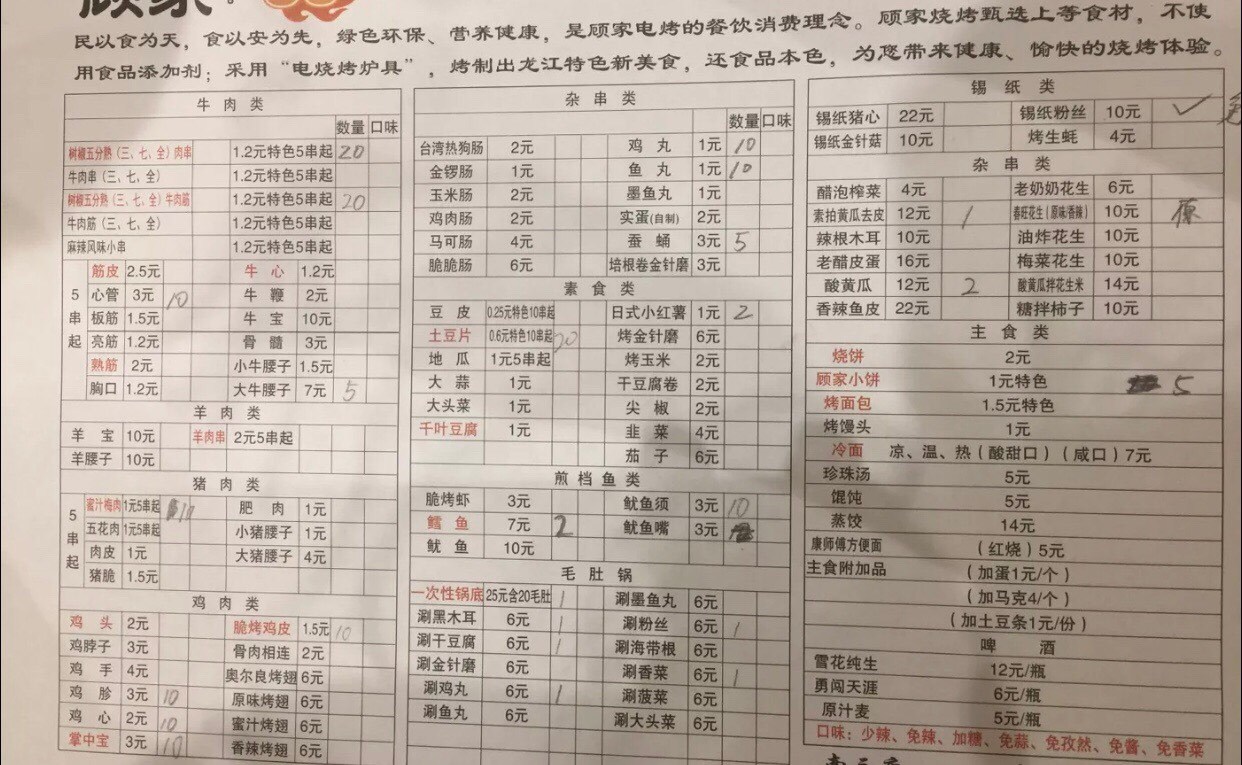 顾家
民以食为天，食以安为先，绿色环保、营养健康，是顾家电烤的餐饮消费理念。顾家烧烤甄选上等食材，不使
用食品添加剂；采用“电烧烤炉具”，烤制出龙江特色新美食，还食品本色，为您带来健康、愉快的烧烤体验。
牛肉类
数量 口味
树椒五分熟（三、七、全）肉串 1.2元特色5串起 20
牛肉串（三、七、全） 1.2元特色5串起
树椒五分熟（三、七、全）牛肉筋 1.2元特色5串起 20
牛肉筋（三、七、全） 1.2元特色5串起
麻辣风味小串 1.2元特色5串起
5串起
筋皮 2.5元 牛心 1.2元
心管 3元 10 牛鞭 2元
板筋 1.5元 牛宝 10元
亮筋 1.2元 骨髓 3元
熟筋 2元 小牛腰子 1.5元
胸口 1.2元 大牛腰子 7元 5
羊肉类
羊宝 10元 羊肉串 2元5串起
羊腰子 10元
猪肉类
5串起
蜜汁梅肉 1元5串起 10 肥肉 1元
五花肉 1元5串起 小猪腰子 1元
肉皮 1元 大猪腰子 4元
猪脆 1.5元
鸡肉类
鸡头 2元 脆烤鸡皮 1.5元 10
鸡脖子 3元 骨肉相连 2元
鸡手 4元 奥尔良烤翅 6元
鸡胗 3元 10 原味烤翅 6元
鸡心 2元 10 蜜汁烤翅 6元
掌中宝 3元 10 香辣烤翅 6元
杂串类
数量 口味
台湾热狗肠 2元 鸡丸 1元 10
金锣肠 1元 鱼丸 1元 10
玉米肠 2元 墨鱼丸 1元
鸡肉肠 2元 实蛋(自制) 2元
马可肠 4元 蚕蛹 3元 5
脆脆肠 6元 培根卷金针磨 3元
素食类
豆皮 0.25元特色10串起 日式小红薯 1元 2
土豆片 0.6元特色10串起 20 烤金针磨 6元
地瓜 1元5串起 烤玉米 2元
大蒜 1元 干豆腐卷 2元
大头菜 1元 尖椒 2元
千叶豆腐 1元 韭菜 4元
茄子 6元
煎档鱼类
脆烤虾 3元 鱿鱼须 3元 10
鳕鱼 7元 2 鱿鱼嘴 3元
鱿鱼 10元
毛肚锅
一次性锅底 25元含20毛肚 1 涮墨鱼丸 6元
涮黑木耳 6元 1 涮粉丝 6元 1
涮干豆腐 6元 1 涮海带根 6元
涮金针磨 6元 涮香菜 6元 1
涮鸡丸 6元 1 涮菠菜 6元
涮鱼丸 6元 涮大头菜 6元
锡纸类
锡纸猪心 22元 锡纸粉丝 10元 ✓
锡纸金针菇 10元 烤生蚝 4元
杂串类
醋泡榨菜 4元 老奶奶花生 6元
素拍黄瓜去皮 12元 1 春旺花生(原味/香辣) 10元 原
辣根木耳 10元 油炸花生 10元
老醋皮蛋 16元 梅菜花生 10元
酸黄瓜 12元 2 酸黄瓜拌花生米 14元
香辣鱼皮 22元 糖拌柿子 10元
主食类
烧饼 2元
顾家小饼 1元特色 5
烤面包 1.5元特色
烤馒头 1元
冷面 凉、温、热（酸甜口）（咸口）7元
珍珠汤 5元
馄饨 5元
蒸饺 14元
康师傅方便面 （红烧）5元
主食附加品 （加蛋1元/个）
（加马克4/个）
（加土豆条1元/份）
啤酒
雪花纯生 12元/瓶
勇闯天涯 6元/瓶
原汁麦 5元/瓶
口味：少辣、免辣、加糖、免蒜、免孜然、免酱、免香菜